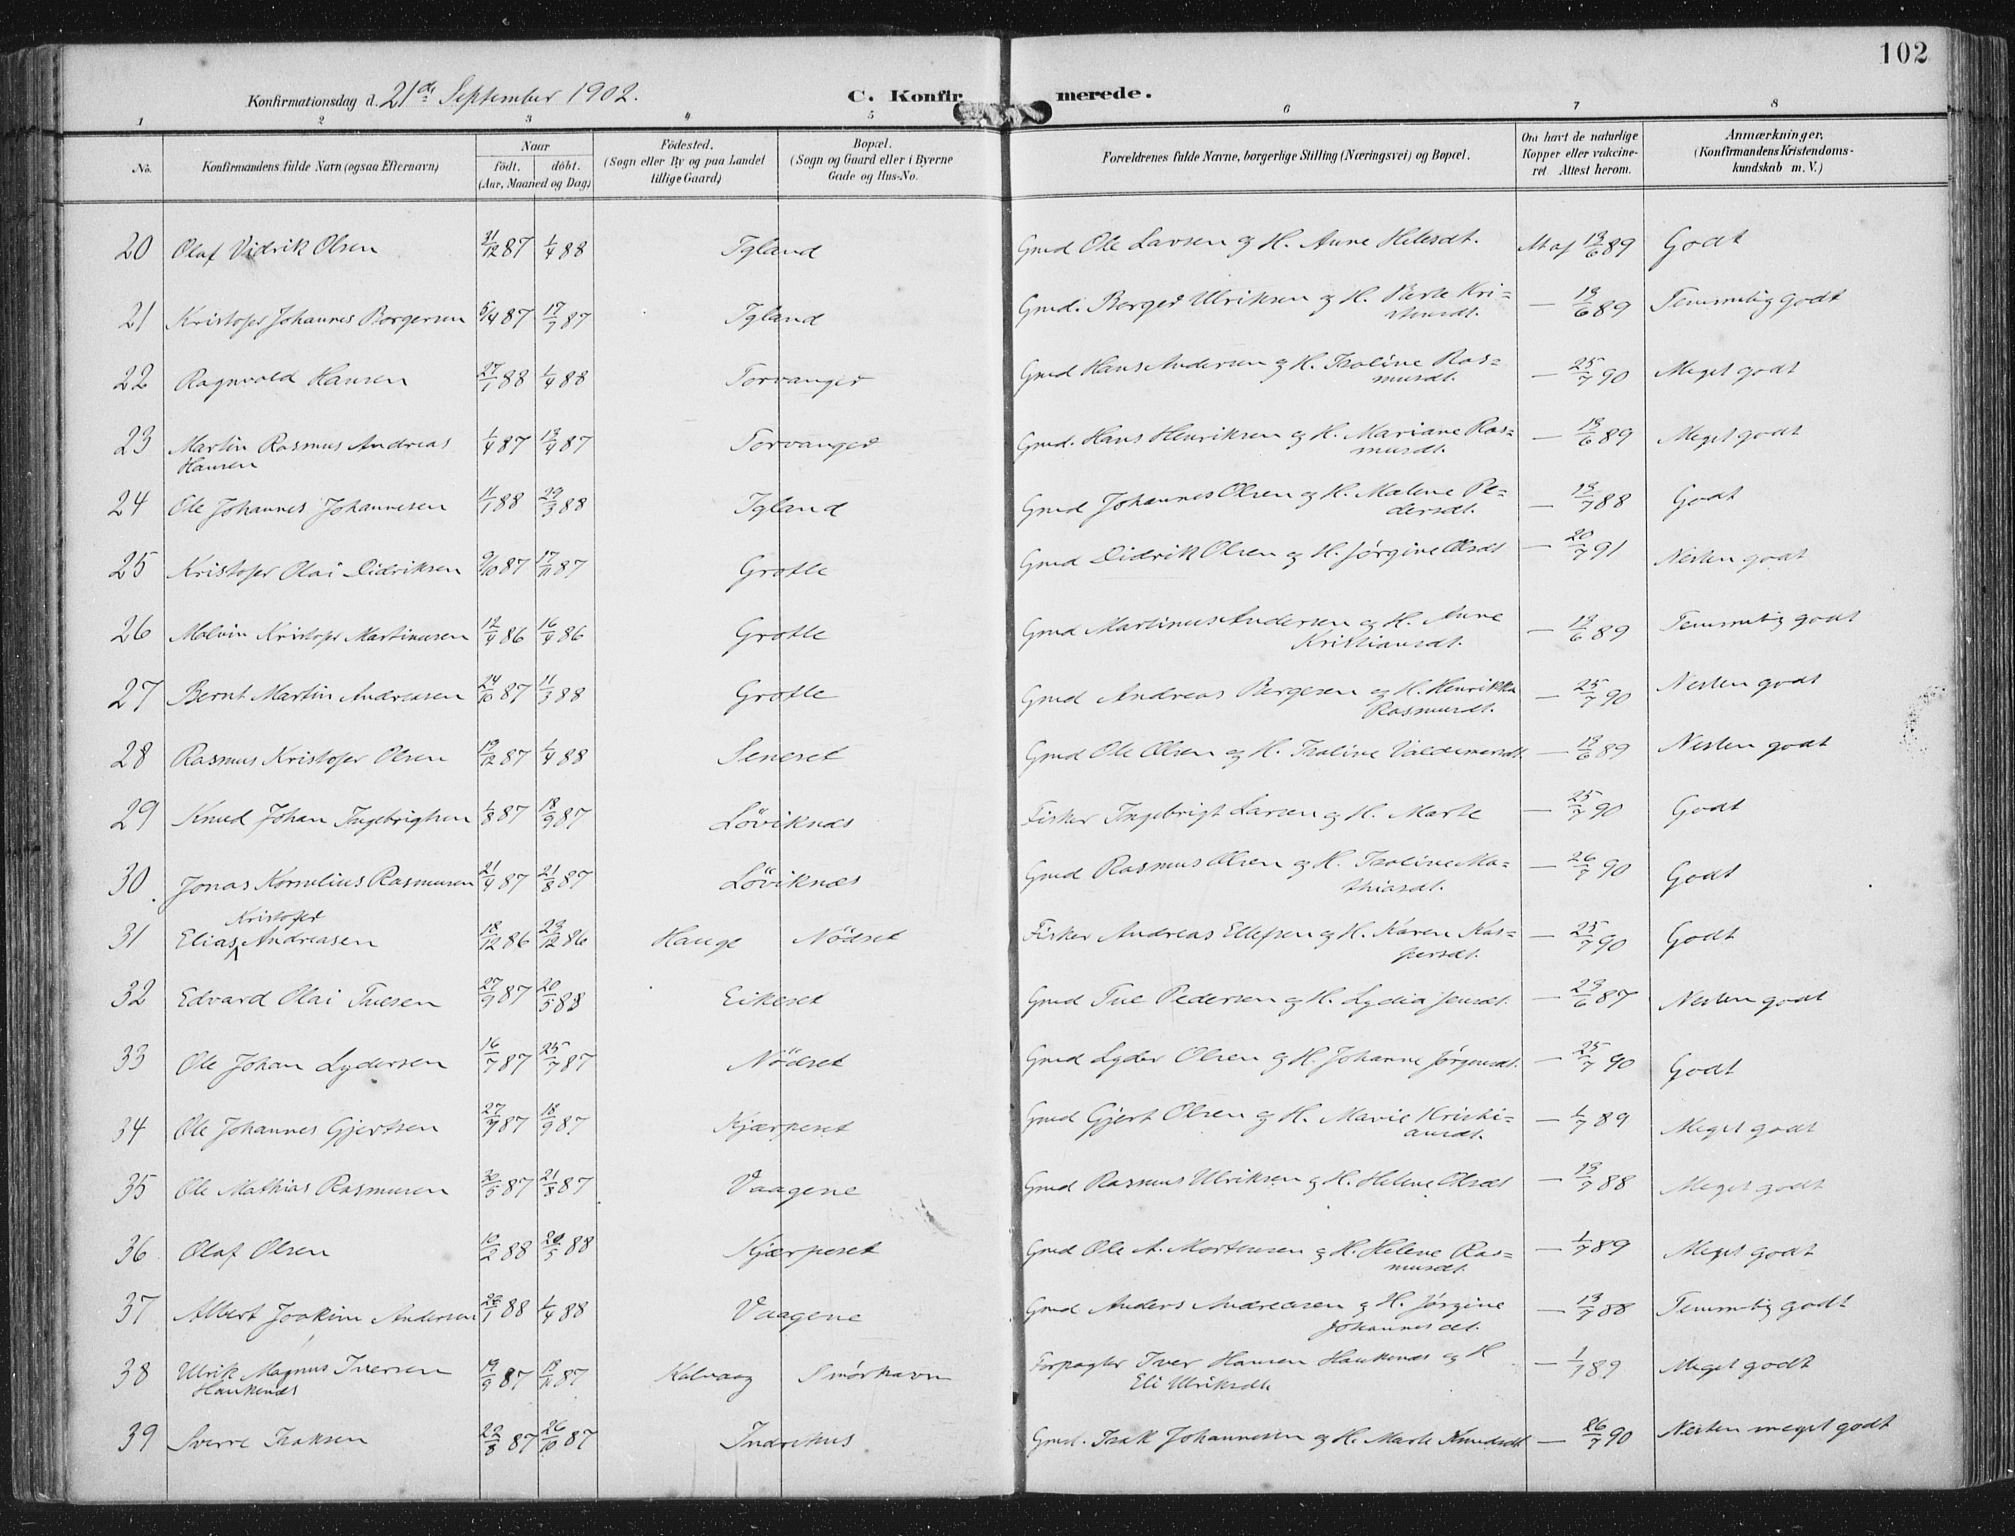 102
Konfirmationsdag d. 21de September 1902.
C. Konfir merede.
1 2 3 4 5 6 7 8
No. Konfirmandens fulde Navn (ogsaa Efternavn) Naar født. døbt. (Aar, Maaned og Dag) Fødested. (Sogn eller By og paa Landet tillige Gaard) Bopæl. (Sogn og Gaard eller i Byerne Gade og Hus-No. Forældrenes fulde Navne, borgerlige Stilling (Næringsvei) og Bopæl. Om havt de naturlige Kopper eller vakcineret Attest herom. Anmærkninger. (Konfirmandens Kristendomskundskab m. V.)
20 Olaf Vidrik Olsen 21/12 87 1/4 88 Igland Gmd Ole Larsen og H. Anne Hilesdt. At af 13/6 89 Godt
21 Kristofer Johannes Borgersen 5/4 87 17/7 87 Igland Gmd. Borger Ulriksen og H. Berte Kri=
stensdt. — 13/6 89 Temmelig godt
22 Ragnvald Hansen 27/1 88 1/4 88 Torvanger Gmd Hans Andersen og H. Isoline Ras=
musdt. — 25/7 90 Meget godt
23 Martin Rasmus Andreas
Hansen 1/4 87 13/4 87 Torvanger Gmd. Hans Henriksen og H. Mariane Ras=
musdt. — 13/6 89 Meget godt
24 Ole Johannes Johannesen 11/1 88 29/3 88 Igland Gmd Johannes Olsen og H. Malene Pe=
dersdt. — 13/7 88 Godt
25 Kristofer Olai Didriksen 9/10 87 17/11 87 Grotle Gmd Didrik Olsen og H. Jørgine Olsdt — 20/7 91 Nesten godt
26 Malvin Kristofer Martinusen 12/4 86 16/4 86 Grotle Gmd Martinus Andersen og H. Anne
Kristiansdt. — 13/6 89 Temmelig godt
27 Bernt Martin Andreasen 24/10 87 11/3 88 Grotle Gmd Andreas Børgesen og H. Henrikka
Rasmusdt. — 25/7 90 Nesten godt
28 Rasmus Kristofer Olsen 19/12 87 1/4 88 Seneset Gmd Ole Olsen og H. Isoline Valdemarsdt — 13/6 89 Nesten godt
29 Knud Johan Ingebrigtsen 1/8 87 18/9 87 Løviknæs Fisker Ingebrigt Larsen og H. Marte — 25/7 90 Godt
30. Jonas Kornelius Rasmusen 21/4 87 21/8 87 Løviknæs Gmd Rasmus Olsen og H. Isoline Ma=
thiasdt. — 26/7 90 Godt
31 Elias Kristofer Andreasen 18/12 86 23/12 86 Hauge Nødset Fisker Andreas Ellefsen og H. Karen Kas=
persdt. — 25/7 90 Godt
32 Edvard Olai Tuesen 27/9 87 20/5 88 Eikeset Gmd Tue Pedersen og H. Lydia Jensdt. — 23/6 87 Nesten godt
33 Ole Johan Lydersen 16/7 87 25/7 87 Nødset Gmd Lyder Olsen og H. Johanne Jørgensdt. — 25/7 90 Godt
34 Ole Johannes Gjertsen 27/7 87 18/9 87 Kjærpeset Gmd Gjert Olsen og H. Marie Kristi=
ansdt. — 1/7 89 Meget godt
35 Ole Mathias Rasmusen 30/5 87 21/8 87 Vaagene Gmd Rasmus Ulriksen og H. Helene Olsdt — 13/7 88 Meget godt
36 Olaf Olsen 10/2 88 20/5 88 Kjærpeset Gmd Ole A. Mortensen og H. Helene Ras=
musdt. — 1/7 89 Meget godt
37 Albert Joakim Andersen 26/1 88 1/4 88 Vaagene Gmd Anders Andreasen og H. Jørgine
Johannesdt. — 13/7 88 Temmelig godt
38 Ulrik Magnus Iversen
Haukenæs 19/9 87 13/11 87 Kalvaag Smørhavn Forpagter Iver Hansen Haukenæs og H
Eli Ulriksdt. — 1/7 89 Meget godt
39 Sverre Isaksen 22/8 87 26/10 87 Indrehus Gmd. Isak Johannesen og H. Marte Knudsdt — 26/7 90 Nesten meget godt